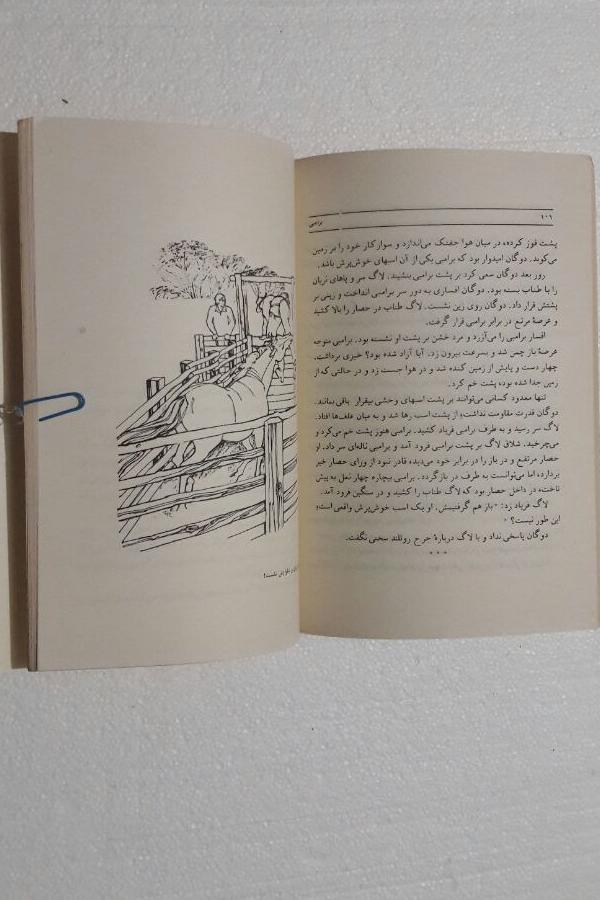 ۱۰۶
برامبی
پشت قوز کرده، در میان هوا جفتک می‌اندازد و سوارکار خود را بر زمین
می‌کوبد. دوگان امیدوار بود که برامبی یکی از آن اسبهای خوش‌پرش باشد.
روز بعد دوگان سعی کرد بر پشت برامبی بنشیند. لاگ سر و پاهای نریان
را با طناب بسته بود. دوگان افساری به دور سر برامبی انداخت و زینی بر
پشتش قرار داد. دوگان روی زین نشست. لاگ طناب در حصار را بالا کشید
و عرصهٔ مرتع در برابر برامبی قرار گرفت.
افسار برامبی را می‌آزرد و مرد خشن بر پشت او نشسته بود. برامبی متوجه
عرصهٔ باز چمن شد و بسرعت بیرون زد. آیا آزاد شده بود؟ خیزی برداشت.
چهار دست و پایش از زمین کنده شد و در هوا جست زد و در حالتی که از
زمین جدا شده بود پشت خم کرد.
تنها معدود کسانی می‌توانند بر پشت اسبهای وحشی بیقرار باقی بمانند.
دوگان قدرت مقاومت نداشت؛ از پشت اسب رها شد و به میان علف‌ها افتاد.
لاگ سر رسید و به طرف برامبی فریاد کشید. برامبی هنوز پشت خم می‌کرد و
می‌چرخید. شلاق لاگ بر پشت برامبی فرود آمد و برامبی ناله‌ای سر داد. او
حصار مرتفع و در باز را در برابر خود می‌دید، قادر نبود از ورای حصار خیز
بردارد، اما می‌توانست به طرف در بازگردد. برامبی بیچاره چهار نعل به پیش
تاخت، در داخل حصار بود که لاگ طناب را کشید و در سنگین فرود آمد.
لاگ فریاد زد: «باز هم گرفتیمش. او یک اسب خوش‌پرش واقعی است،
این طور نیست؟»
دوگان پاسخی نداد و با لاگ دربارهٔ جرج روتلند سخنی نگفت.
* * *
زین نشست!